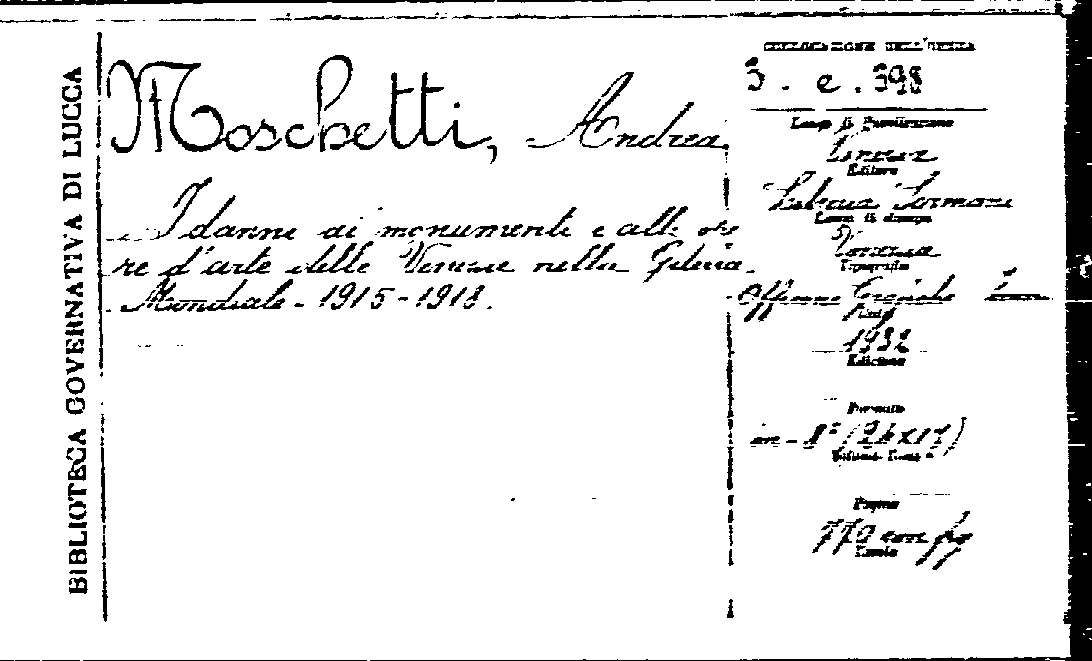 BIBLIOTECA GOVERNATIVA DI LUCCA
Moschetti, Andrea
I danni ai monumenti e alle ope
re d'arte delle Venezie nella
Mondiale - 1915-1918.
COLLOCAZIONE DELL'OPERA
5. e. 398
Luogo di Pubblicazione
Venezia
Editore
Libreria Sormani
Luogo di stampa
Venezia
Tipografia
Officine Grafiche
1932
Edizione
Formato
in-8° (26x17)
Volume
Pagine
770 con fig
Tavole